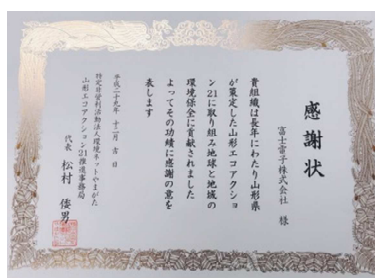 感謝状
富士電子株式会社 様
貴組織は長年にわたり山形県
が策定した山形エコアクショ
ン21に取り組み地球と地域の
環境保全に貢献されました
よってその功績に感謝の意を
表します
平成二十九年 十二月 吉 日
特定非営利活動法人環境ネットやまがた
山形エコアクション21推進事務局
代表 松村 倭男